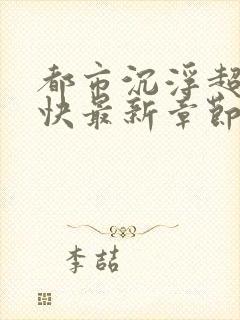 都市沉浮超
快最新章节
李喆